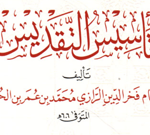 تأسيس التقديس
تأليف
ـام فخر الدين الرازي محمد بن عمر بن الحـ
المتوفى ٦٠٦هـ